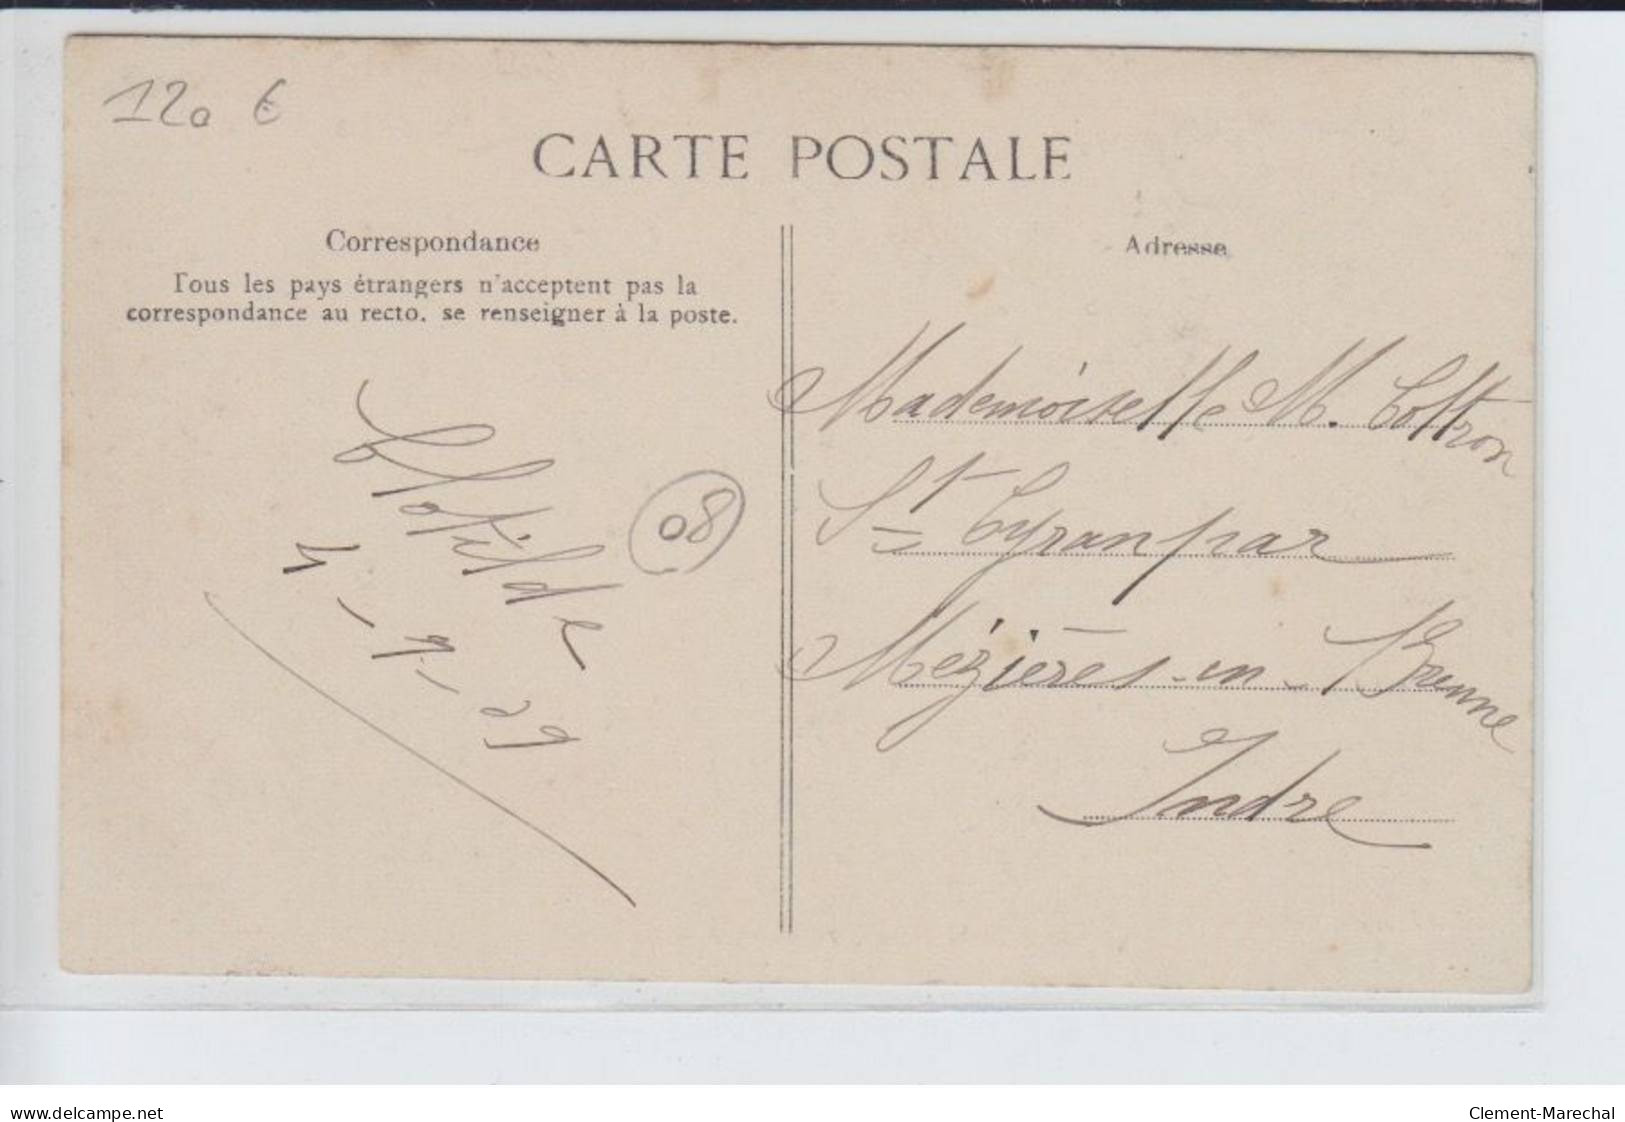 120 €
CARTE POSTALE
Correspondance
Tous les pays étrangers n'acceptent pas la
correspondance au recto, se renseigner à la poste.
Clotilde
08
Adresse
Mademoiselle M.
St Cyran par
Mézières-en-Brenne
Indre
www.delcampe.net
Clement-Marechal